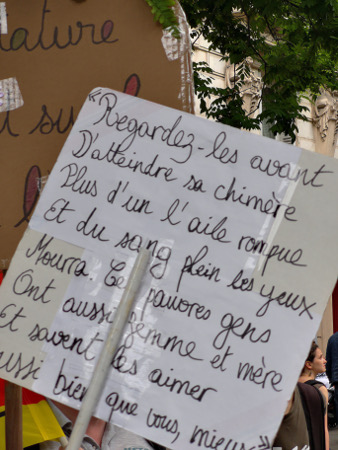 nature
su
"Regardez-les avant
D'atteindre sa chimère
Plus d'un l'aile rompue
Et du sang plein les yeux
Mourra. Ces pauvres gens
Ont aussi femme et mère
Et savent les aimer
aussi bien que vous, mieux"